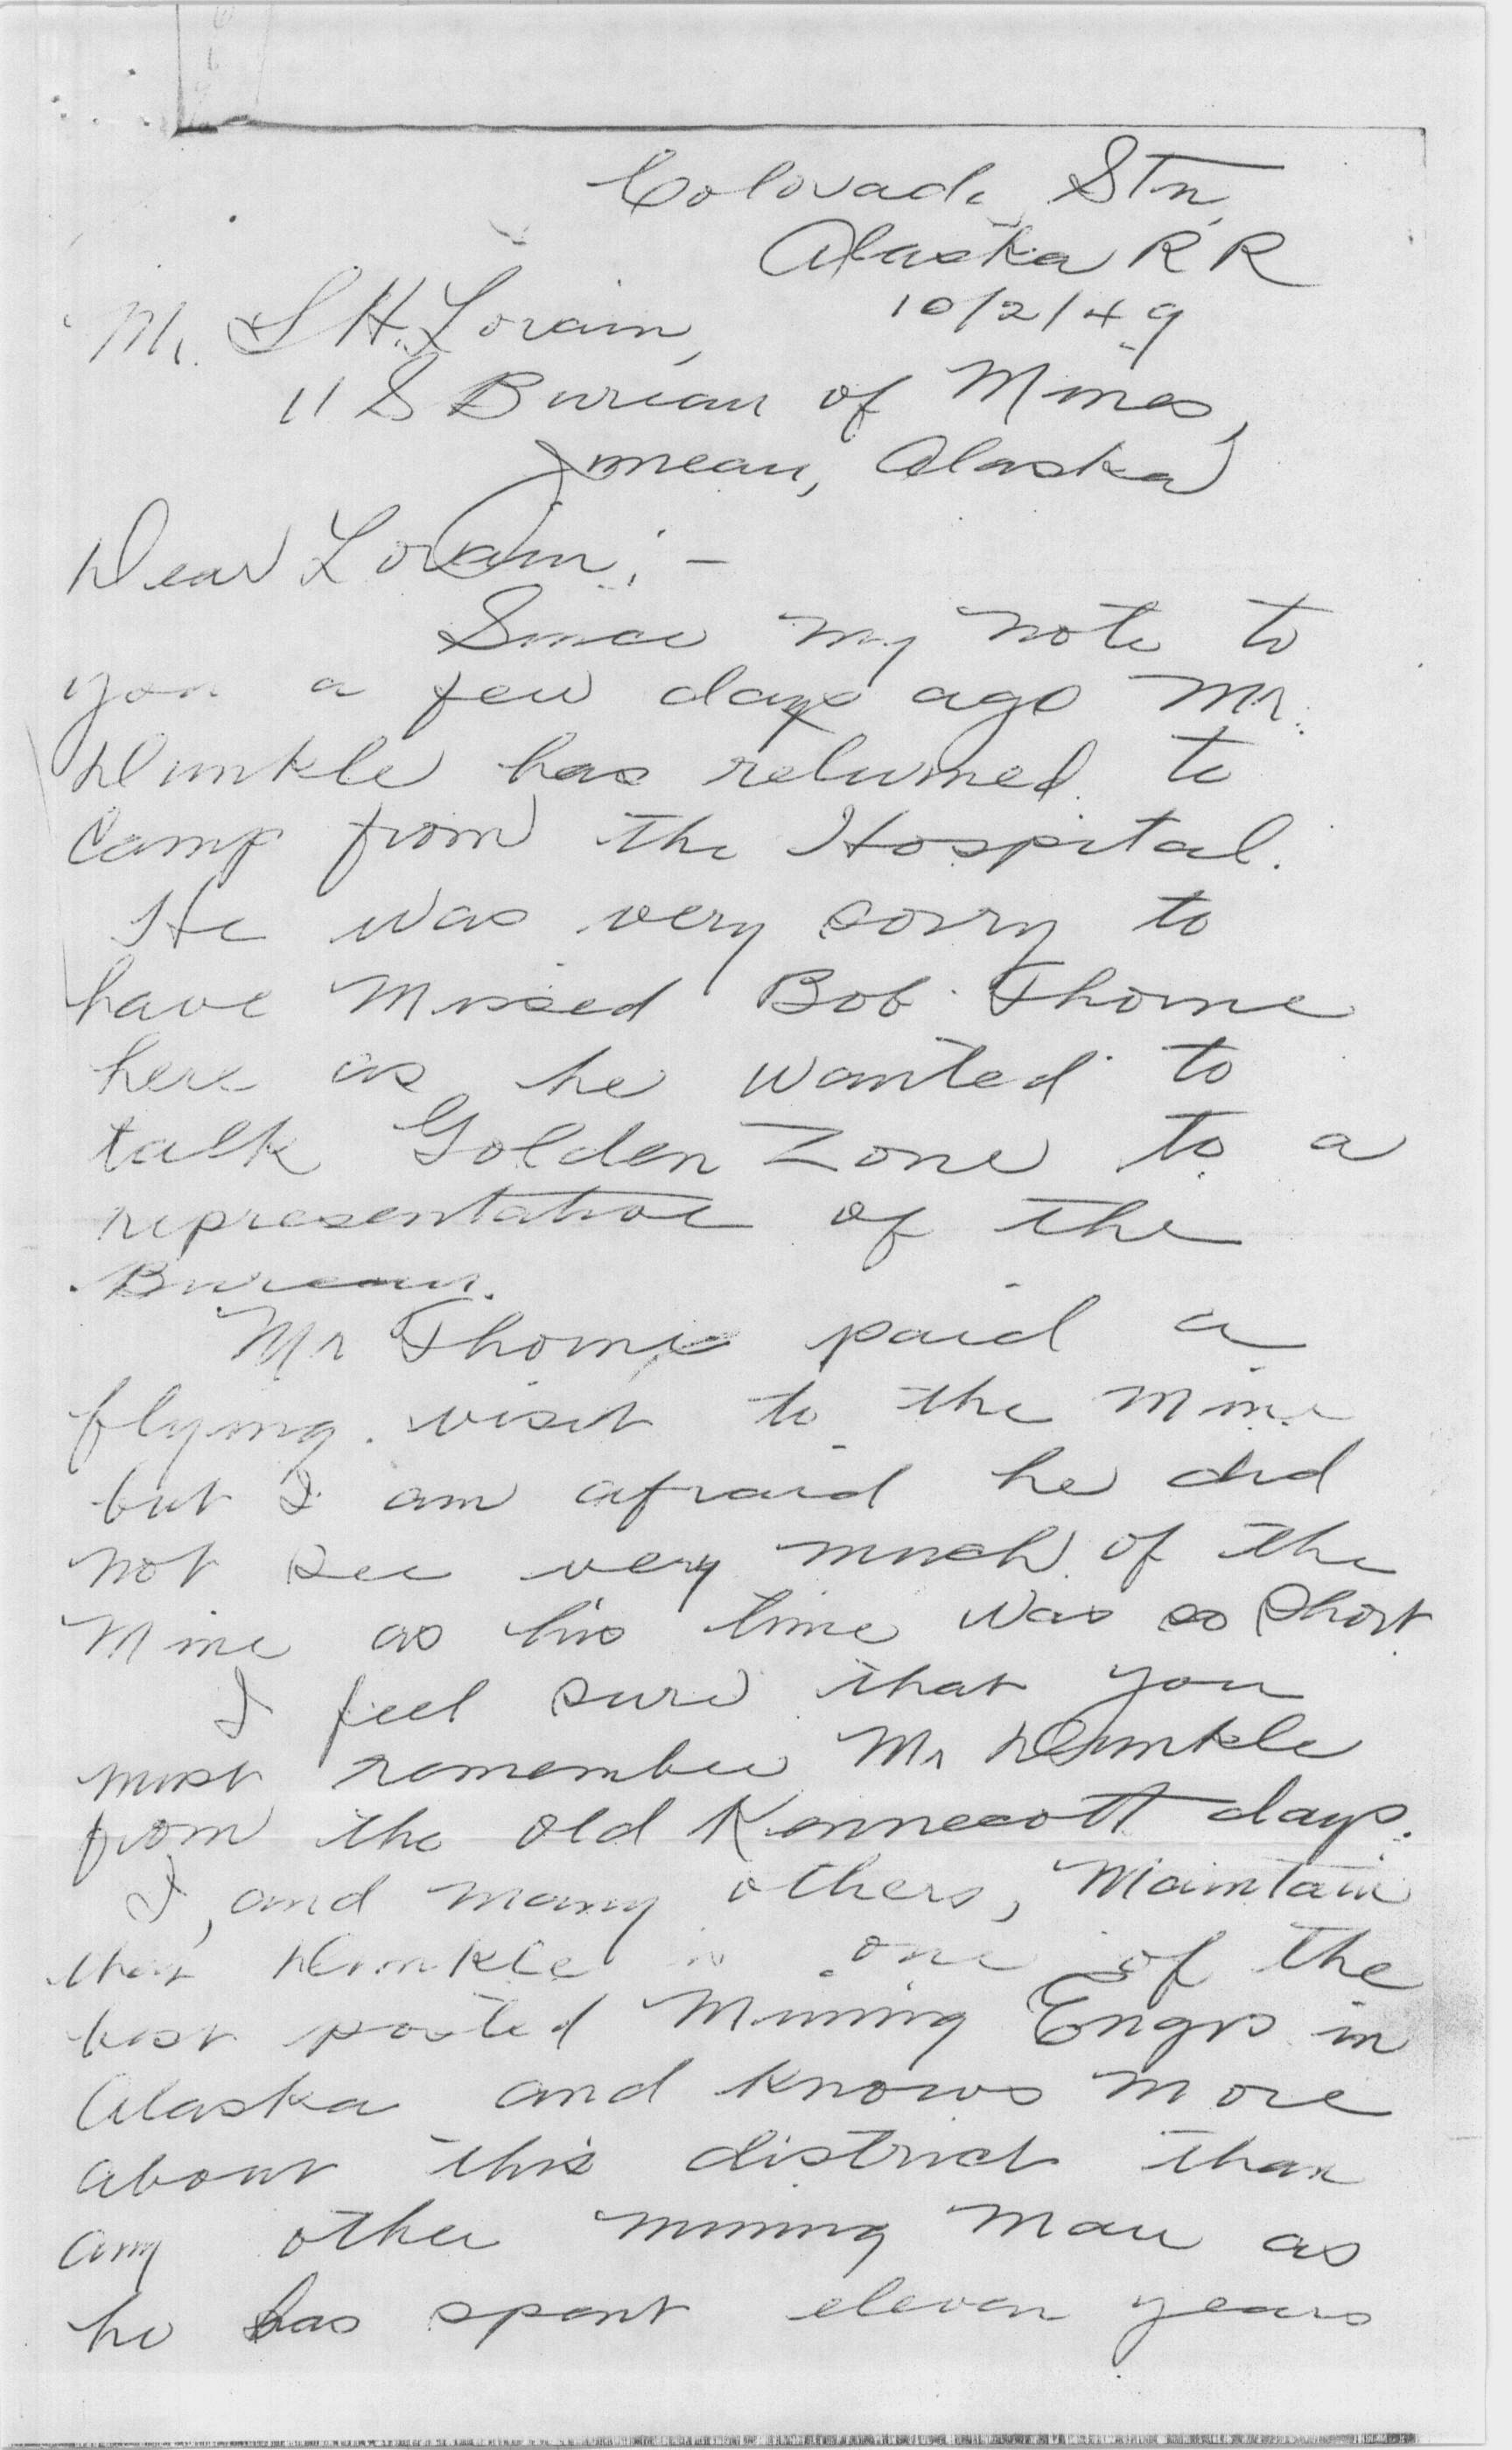 Colorado Stn,
Alaska R R
10/2/49
Mr. S H. Lorain,
U S Bureau of Mines,
Juneau, Alaska
Dear Lorain; -
Since my note to
you a few days ago Mr.
Dunkle has returned to
Camp from the Hospital.
He was very sorry to
have missed Bob Thorne
here as he wanted to
talk Golden Zone to a
representative of the
Bureau.
Mr Thorne paid a
flying visit to the mine
but I am afraid he did
not see very much of the
mine as his time was so short
I feel sure that you
must remember Mr Dunkle
from the old Kennecott days.
I, and many others, maintain
that Dunkle is one of the
best posted Mining Engrs in
Alaska and knows more
about this district than
any other mining man as
he has spent eleven years